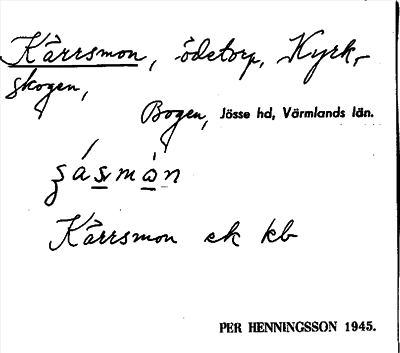 Kårrsmon, ödetorp, Kyrk-
skogen,
Bogen, Jösse hd, Värmlands län.
Kårrsmon ek kb
PER HENNINGSSON 1945.